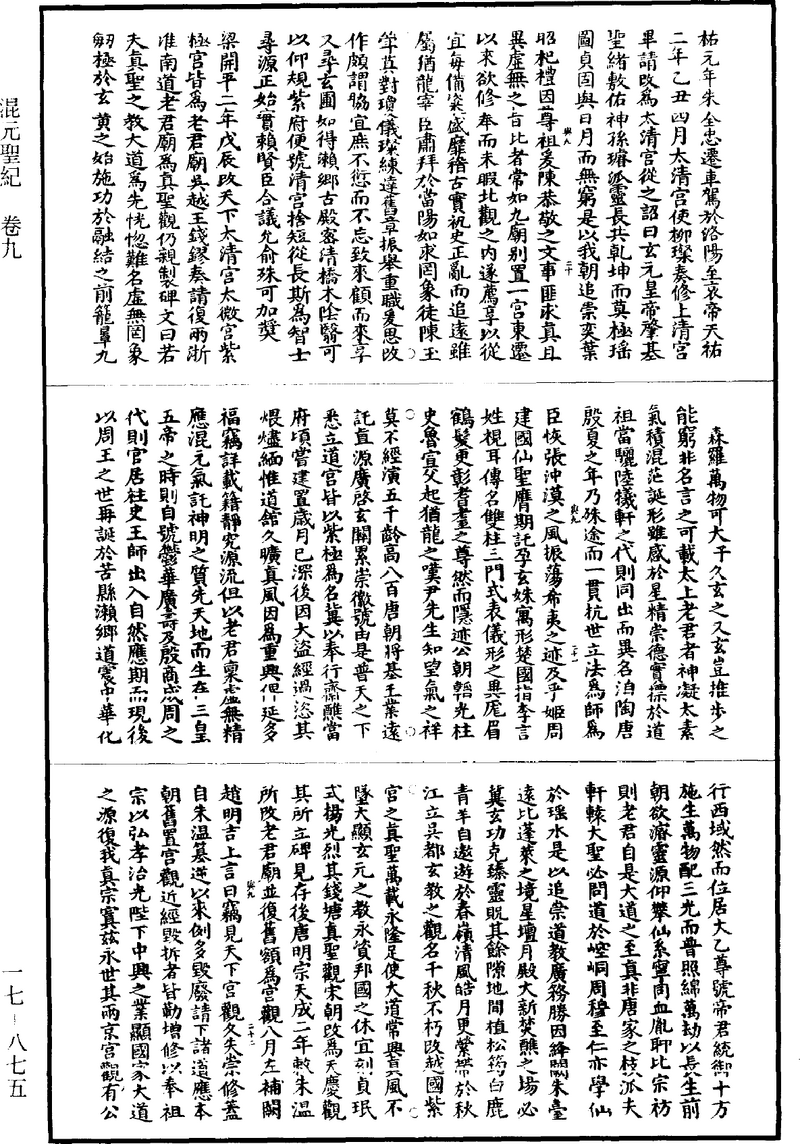 混元聖紀　卷九
一七‐八七五
祐元年朱全忠遷車駕於洛陽至哀帝天祐
二年乙丑四月太清宮使柳璨奏修上清宮
畢請改為太清宮從之詔曰玄元皇帝肇基
聖緒敷佑神孫璿派靈長共乾坤而莫極瑤
圖貞固與日月而無窮是以我朝追崇奕葉
昭祀禮因尊祖爰陳恭敬之文事匪求真且
異虛無之旨比者常如九廟別置一宮東遷
以來欲修奉而未暇北觀之內遂薦享以從
宜每備粢盛靡稽古實祝史正亂而追遠雖
屬猶龍宰臣肅拜於當陽如求罔象徒陳玉
等莫對瓊儀璨練達舊章振舉重職爰思改
作頗謂脇宜庶不愆而不忘致來顧而來享
又尋玄圃如得瀨鄉古殿寥清橋木陰翳可
以仰規紫府便號清宮捨短從長斯為智士
尋源正始實賴賢臣合議允俞殊可加獎
梁開平二年戊辰改天下太清宮太微宮紫
極宮皆為老君廟吳越王錢鏐奏請復兩浙
淮南道老君廟為真聖觀仍親製碑文曰若
夫真聖之教大道為先恍惚難名虛無罔象
剏極於玄黃之始施功於融結之前籠羃九
森羅萬物可大于久玄之又玄豈推步之
能窮非名言之可載太上老君者神凝太素
氣積混茫誕形雖感於星精崇德實標於道
祖當驪陸犧軒之代則同出而異名洎陶唐
殷夏之年乃殊途而一貫抗世立法為師為
臣恢張沖漠之風振蕩希夷之迹及乎姬周
建國仙聖膺期託孕玄妹寓形楚國指李言
姓視耳傳名雙柱三門式表儀形之異厖眉
鶴髮更彰耆耋之尊然而隱迹公朝韜光柱
史魯宣父起猶龍之嘆尹先生知望氣之祥
莫不經演五千齡高八百唐朝將基王業遠
託真源廣啓玄關累崇徽號由是普天之下
悉立道宮皆以紫極為名冀以奉行齋醮當
府頃嘗建置歲月已深後因大盜經過恣其
煨燼緬惟道館久曠真風因為重興俾延多
福竊詳載籍靜究源流但以老君稟虛無精
應混元氣託神明之質先天地而生在三皇
五帝之時則自號鬱華廣壽及殷商成周之
代則官居柱史王師出入自然應期而現後
以周王之世再誕於苦縣瀨鄉道震中華化
行西域然而位居大乙尊號帝君統御十方
施生萬物配三光而普照綿萬劫以長生前
朝欲濬靈源仰攀仙系寧同血胤聊比宗枋
則老君自是大道之至真非唐家之枝派夫
軒轅大聖必問道於崆峒周穆至仁亦學仙
於瑤水是以追崇道教廣務勝因絳闕朱臺
遠比蓬萊之境星壇月殿大新焚醮之場必
冀玄功克臻靈貺其餘隙地間植松筠白鹿
青羊自遨遊於春嶺清風皓月更縈拂於秋
江立吳都玄教之觀名千秋不朽改越國紫
宮之真聖萬載永隆足使大道常興真風不
墜大顯玄元之教永資邦國之休宜刻貞珉
式揚光烈其錢塘真聖觀宋朝改為天慶觀
其所立碑見存後唐明宗天成二年敕朱溫
所改老君廟並復舊額為宮觀八月左補闕
趙明吉上言曰竊見天下宮觀久失崇修蓋
自朱溫篡逆以來例多毀廢請下諸道應本
朝舊置宮觀近經毀拆者皆勒增修以奉祖
宗以弘孝治光陛下中興之業顯國家大道
之源復我真宗實茲永世其兩京宮觀有公